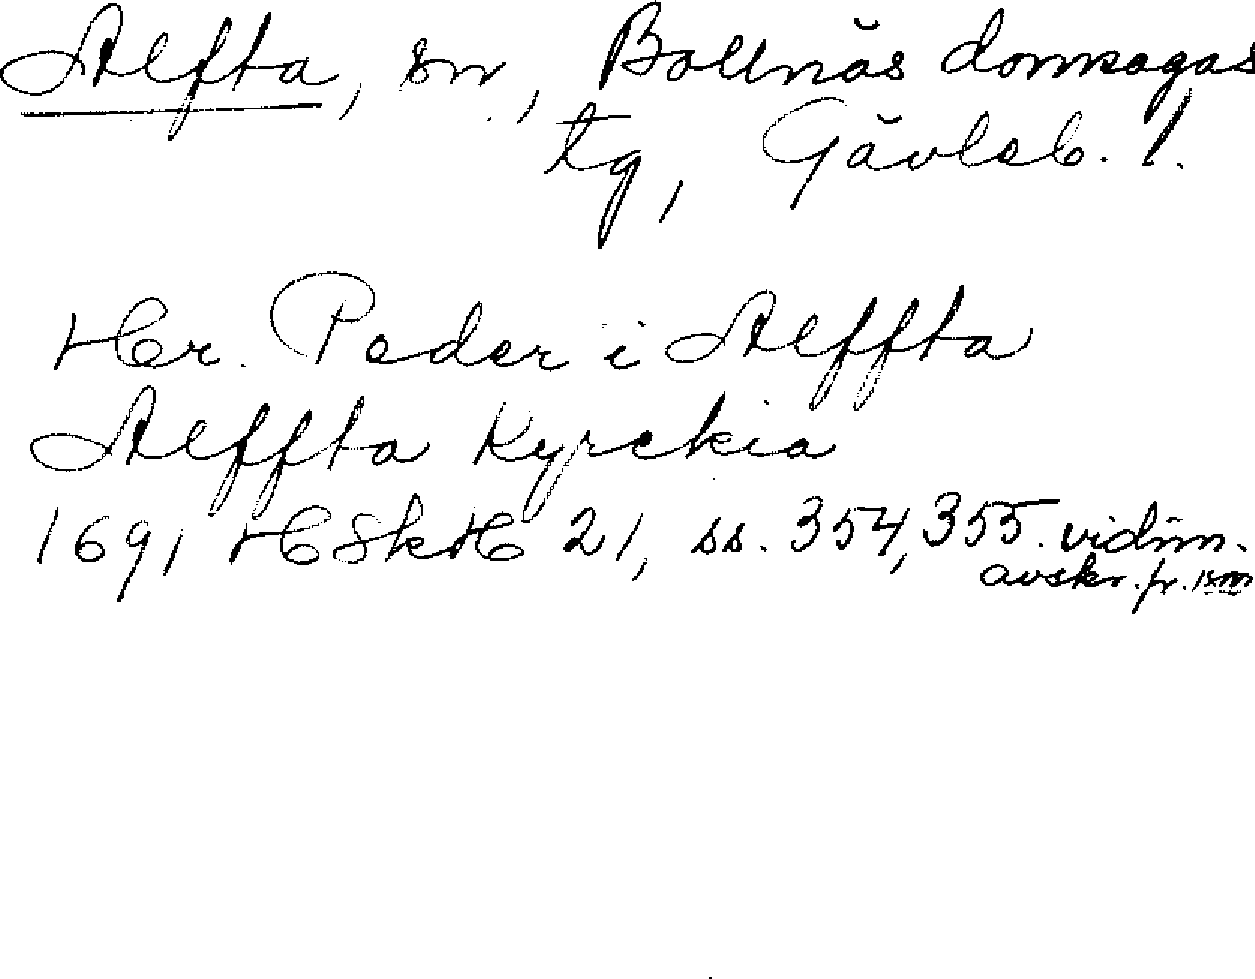 Alfta, sn, Bollnäs domsagas
tg, Gävleb. l.
Hr. Peder i Alffta
Alffta Kyrckia
1691 HSkH 21, ss. 354, 355. vidim.
avskr. fr.